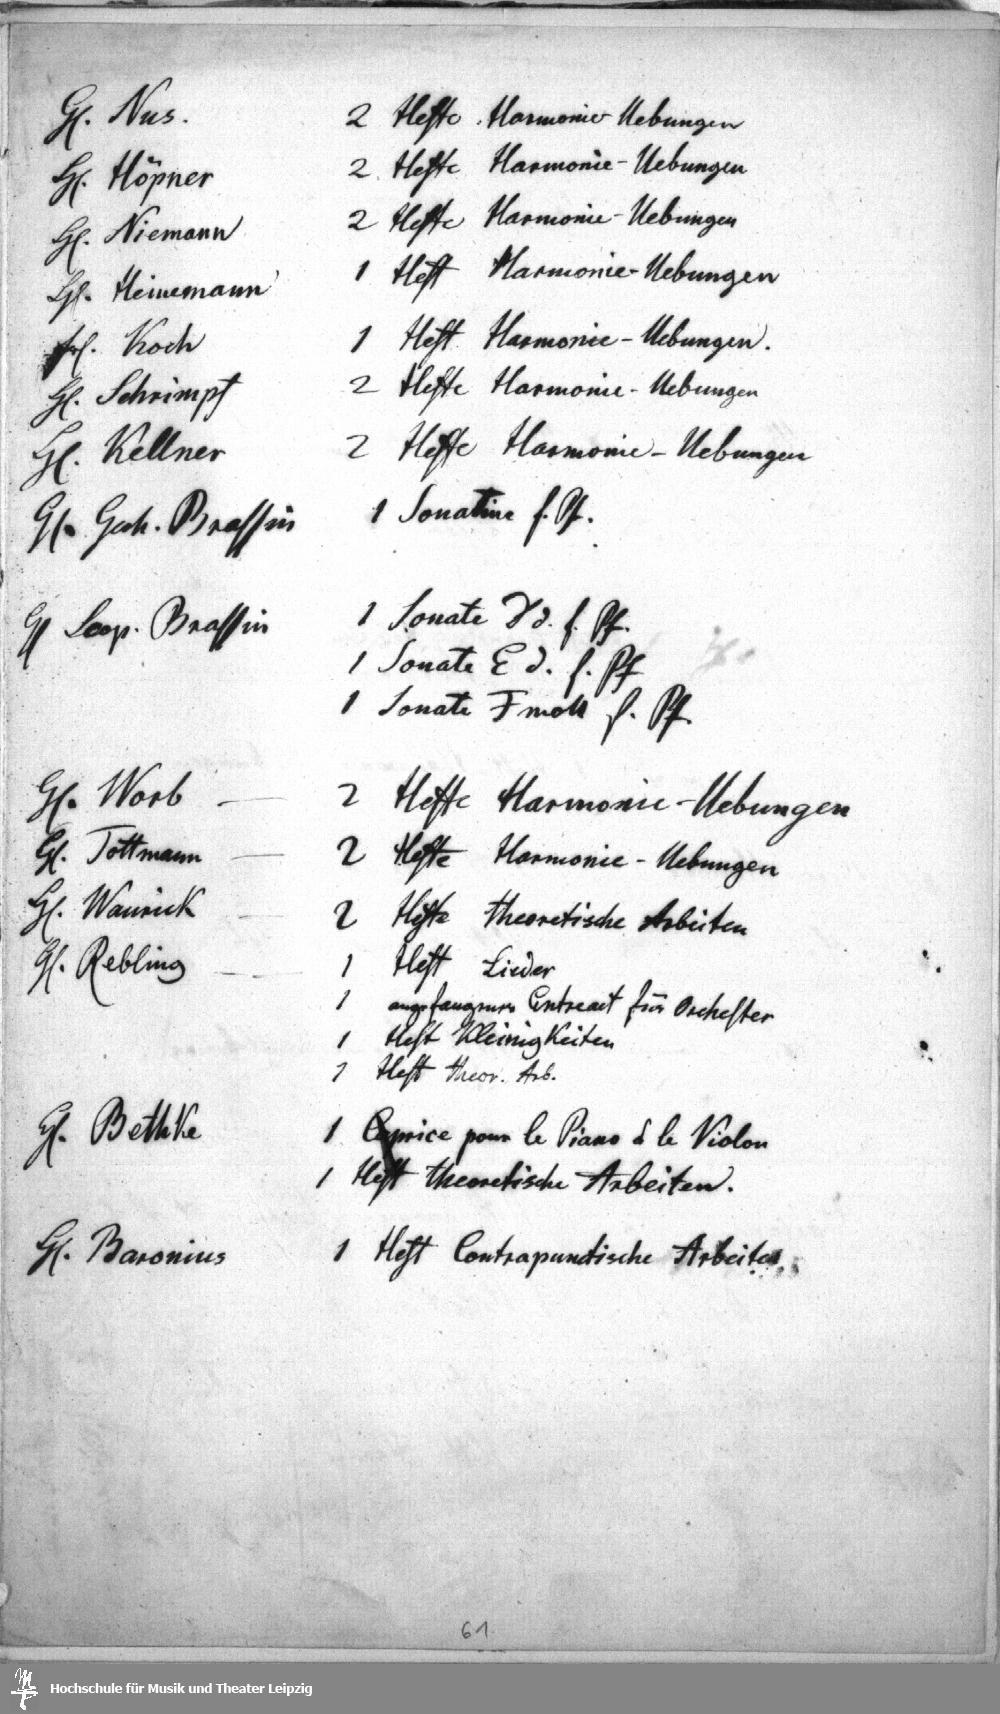 H. Nus. 2 Hefte Harmonie-Uebungen
H. Höpner 2 Hefte Harmonie-Uebungen
H. Niemann 2 Hefte Harmonie-Uebungen
H. Heinemann 1 Heft Harmonie-Uebungen
Frl. Koch 1 Heft Harmonie-Uebungen.
H. Schrimpf 2 Hefte Harmonie-Uebungen
H. Kellner 2 Hefte Harmonie-Uebungen
H. Gerh. Brassin 1 Sonatine f. Pf.
H. Leop. Brassin 1 Sonate d. f. Pf.
1 Sonate E d. f. Pf
1 Sonate F moll f. Pf.
H. Worb — 2 Hefte Harmonie-Uebungen
H. Tottmann — 2 Hefte Harmonie-Uebungen
H. Waurick — 2 Hefte theoretische Arbeiten
H. Rebling — 1 Heft Lieder
1 angefangener Entreact für Orchester
1 Heft Kleinigkeiten
1 Heft theor. Arb.
H. Bethke 1 Caprice pour le Piano & le Violon
1 Heft theoretische Arbeiten.
H. Baronius 1 Heft Contrapunctische Arbeiten
61
Hochschule für Musik und Theater Leipzig